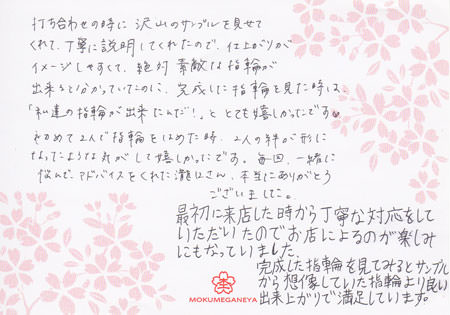 打ち合わせの時に沢山のサンプルを見せて
くれて、丁寧に説明してくれたので、仕上がりが
イメージしやすくて、絶対素敵な指輪が
出来ると分かっていたのに、完成した指輪を見た時は、
「私達の指輪が出来たんだ！」と とても嬉しかったです♥
初めて2人で指輪をはめた時、2人の絆が形に
なったような気がして嬉しかったです。毎回、一緒に
悩んで、アドバイスをくれた瀧口さん、本当にありがとう
ございました。
最初に来店した時から丁寧な対応をして
いただいたのでお店によるのが楽しみ
にもなっていました。
完成した指輪を見てみるとサンプル
から想像していた指輪より良い
出来上がりで満足しています。
MOKUMEGANEYA